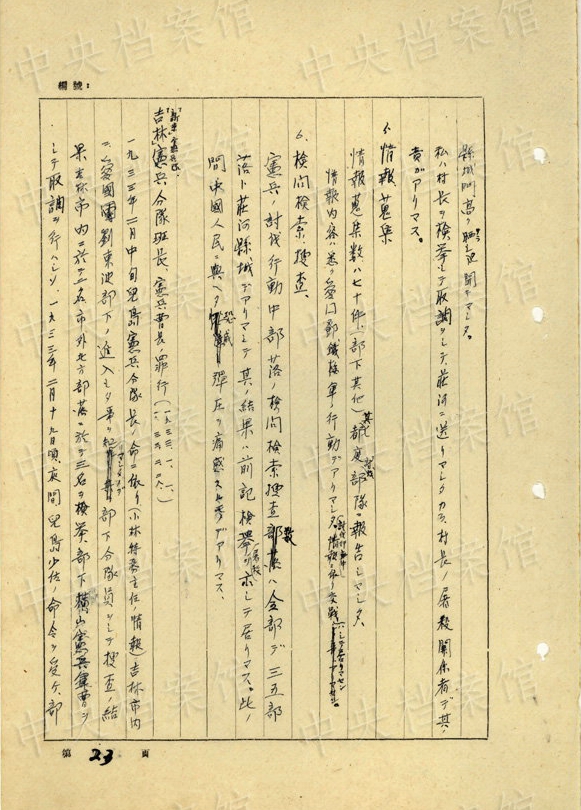 編號：
縣城門高ク晒シ記聞デシタ。
私ハ村長ヲ検挙シテ取調ヲシテ莊河ニ送リマシタカラ、村長ノ屠殺関係者デ其ノ
責ガアリマス。
5、情報蒐集
情報蒐集数ハ七十件（部下其他）其ノ都度部隊ニ報告シマシタ。
情報内容ハ悉ク愛国 鄧鐵梅軍ノ行動デアリマシタ。情報ニ依リ交戦ハシテ居リマセン
6、検問検索、捜査。
憲兵ノ討伐行動中部落ノ検問検索捜査 数ハ全部デ三五部
落ト莊河縣城デアリマシテ其ノ結果ハ前記検挙 ヲ示シテ居リマス。此ノ
間中国人民ニ與ヘタ恐威 弾圧ヲ痛感スル者デアリマス。
新京憲兵隊、
吉林憲兵分隊班長、憲兵曹長罪行（一九三三、一、一、
一九三三年二月中旬児島憲兵分隊長ノ命ニ依リ（小林特務主任ノ情報）吉林市内
ニ愛國軍劉東池部下ノ進入シタ事ヲ 部下分隊員ヲシテ捜査ノ結
果吉林市内ニ於テ二名、市外北方部落ニ於テ三名ヲ検挙、部下横山憲兵軍曹ヲ
シテ取調ヲ行ハシメ、一九三三年二月十九日頃、夜間児島少佐ノ命令ヲ受ケ、部
第 23 頁
中央档案馆